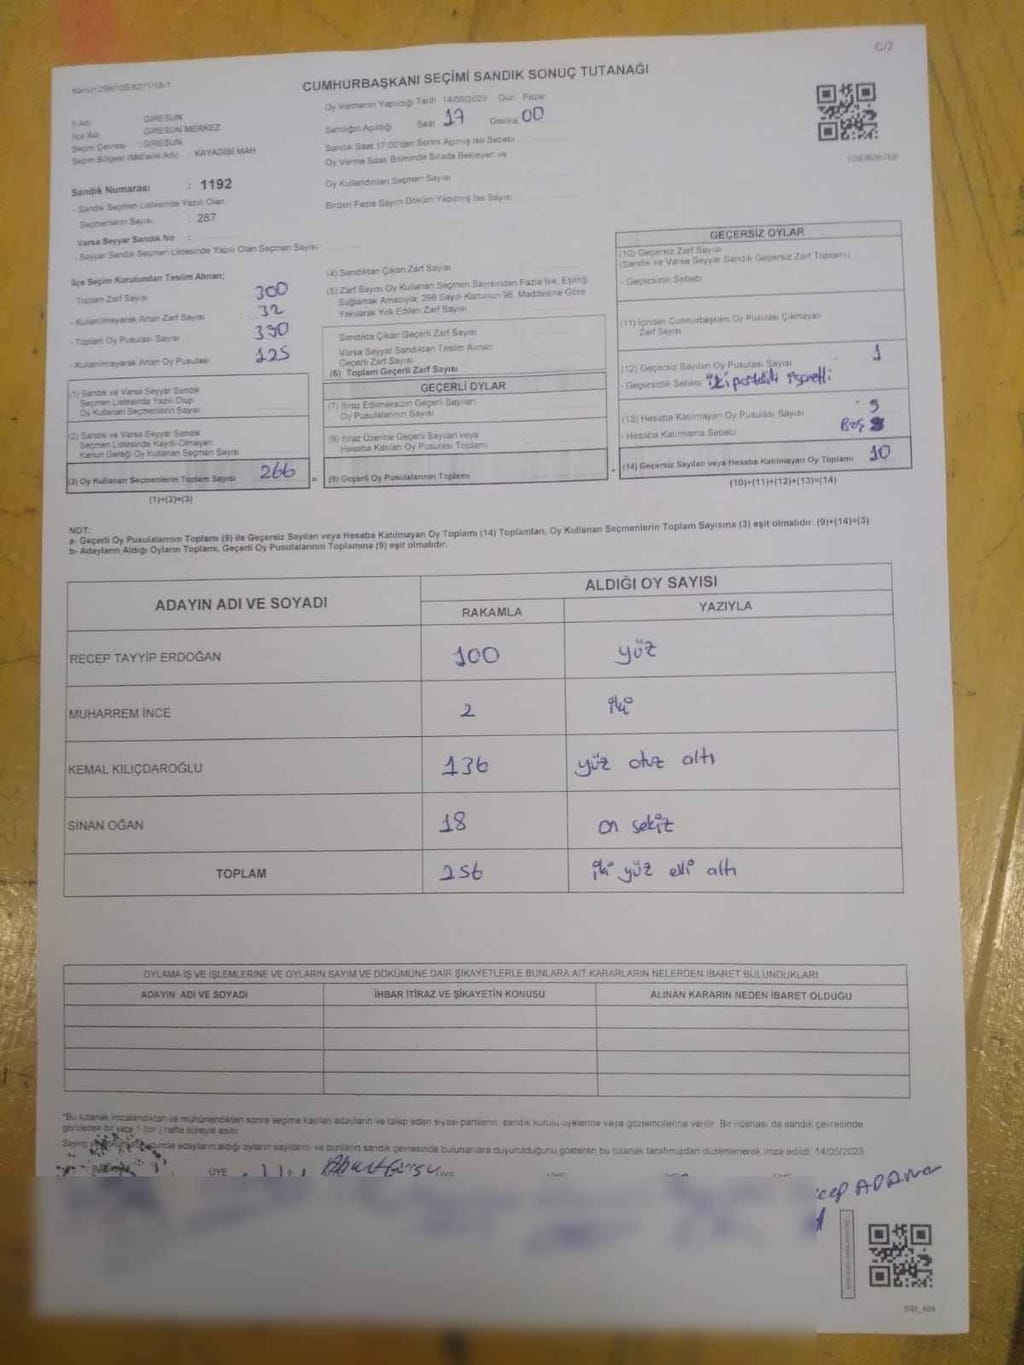 C/2
CUMHURBAŞKANI SEÇİMİ SANDIK SONUÇ TUTANAĞI
Oy Vermenin Yapıldığı Tarih 14/05/2023 Gün Pazar
İl Adı GİRESUN
İlçe Adı GİRESUN MERKEZ
Seçim Çevresi : GİRESUN
Seçim Bölgesi (Mahalle Adı) : KAYADİBİ MAH
Sandığın Açıldığı Saat 17 Dakika 00
Sandık Saat 17:00'dan Sonra Açılmış İse Sebebi
Oy Verme Saati Bitiminde Sırada Bekleyen ve
Oy Kullandırılan Seçmen Sayısı
Birden Fazla Sayım Döküm Yapılmış İse Sayısı
Sandık Numarası : 1192
- Sandık Seçmen Listesinde Yazılı Olan
Seçmenlerin Sayısı : 287
Varsa Seyyar Sandık No :
- Seyyar Sandık Seçmen Listesinde Yazılı Olan Seçmen Sayısı
İlçe Seçim Kurulundan Teslim Alınan;
- Toplam Zarf Sayısı 300
- Kullanılmayarak Artan Zarf Sayısı 32
- Toplam Oy Pusulası Sayısı 390
- Kullanılmayarak Artan Oy Pusulası 125
(1) Sandık ve Varsa Seyyar Sandık
Seçmen Listesinde Yazılı Olup
Oy Kullanan Seçmenlerin Sayısı
(2) Sandık ve Varsa Seyyar Sandık
Seçmen Listesinde Kayıtlı Olmayan
Kanun Gereği Oy Kullanan Seçmen Sayısı
(3) Oy Kullanan Seçmenlerin Toplam Sayısı 266
(1)+(2)=(3)
(4) Sandıktan Çıkan Zarf Sayısı
(5) Zarf Sayısı Oy Kullanan Seçmen Sayısından Fazla İse, Eşitliği
Sağlamak Amacıyla; 298 Sayılı Kanunun 98. Maddesine Göre
Yakılarak Yok Edilen Zarf Sayısı
Sandıkta Çıkan Geçerli Zarf Sayısı
Varsa Seyyar Sandıktan Teslim Alınan
Geçerli Zarf Sayısı
(6) Toplam Geçerli Zarf Sayısı
GEÇERLİ OYLAR
(7) İtiraz Edilmeksizin Geçerli Sayılan
Oy Pusulalarının Sayısı
(8) İtiraz Üzerine Geçerli Sayılan veya
Hesaba Katılan Oy Pusulası Toplamı
(9) Geçerli Oy Pusulalarının Toplamı
GEÇERSİZ OYLAR
(10) Geçersiz Zarf Sayısı
(Sandık ve Varsa Seyyar Sandık Geçersiz Zarf Toplamı)
- Geçersizlik Sebebi
(11) İçinden Cumhurbaşkanı Oy Pusulası Çıkmayan
Zarf Sayısı
(12) Geçersiz Sayılan Oy Pusulası Sayısı 1
- Geçersizlik Sebebi
(13) Hesaba Katılmayan Oy Pusulası Sayısı 9
- Hesaba Katılmama Sebebi Boş
(14) Geçersiz Sayılan veya Hesaba Katılmayan Oy Toplamı 10
(10)+(11)+(12)+(13)=(14)
NOT:
a- Geçerli Oy Pusulalarının Toplamı (9) ile Geçersiz Sayılan veya Hesaba Katılmayan Oy Toplamı (14) Toplamları, Oy Kullanan Seçmenlerin Toplam Sayısına (3) eşit olmalıdır. (9)+(14)=(3)
b- Adayların Aldığı Oyların Toplamı, Geçerli Oy Pusulalarının Toplamına (9) eşit olmalıdır.
ADAYIN ADI VE SOYADI ALDIĞI OY SAYISI
RAKAMLA YAZIYLA
RECEP TAYYİP ERDOĞAN 100 yüz
MUHARREM İNCE 2 iki
KEMAL KILIÇDAROĞLU 136 yüz otuz altı
SİNAN OĞAN 18 on sekiz
TOPLAM 256 iki yüz elli altı
OYLAMA İŞ VE İŞLEMLERİNE VE OYLARIN SAYIM VE DÖKÜMÜNE DAİR ŞİKAYETLERLE BUNLARA AİT KARARLARIN NELERDEN İBARET BULUNDUKLARI
ADAYIN ADI VE SOYADI İHBAR İTİRAZ VE ŞİKAYETİN KONUSU ALINAN KARARIN NEDEN İBARET OLDUĞU
*Bu tutanak imzalandıktan ve mühürlendikten sonra seçime katılan adayların ve talep eden siyasi partilerin sandık kurulu üyelerine veya gözlemcilerine verilir. Bir nüshası da sandık çevresinde
görülecek bir yere 1 (bir) hafta süreyle asılır.
adayların aldığı oyların sayılarını ve bunların sandık çevresinde bulunanlara duyurulduğunu gösteren bu tutanak tarafımızdan düzenlenerek imza edildi. 14/05/2023
ÜYE